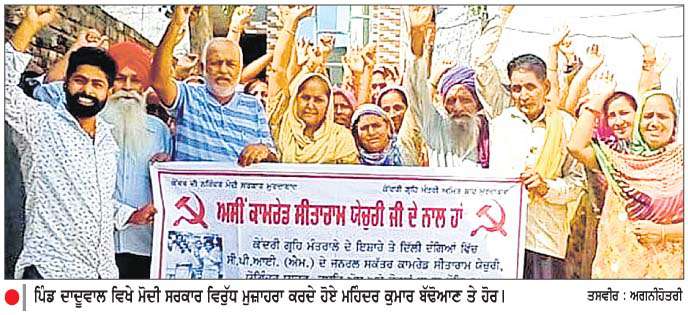 ਕੇਂਦਰ ਦੀ ਨਰਿੰਦਰ ਮੋਦੀ ਸਰਕਾਰ ਮੁਰਦਾਬਾਦ
ਕੇਂਦਰੀ ਗ੍ਰਹਿ ਮੰਤਰੀ ਅਮਿਤ ਸ਼ਾਹ ਮੁਰਦਾਬਾਦ
ਅਸੀਂ ਕਾਮਰੇਡ ਸੀਤਾਰਾਮ ਯੇਚੁਰੀ ਜੀ ਦੇ ਨਾਲ ਹਾਂ
ਕੇਂਦਰੀ ਗ੍ਰਹਿ ਮੰਤਰਾਲੇ ਦੇ ਇਸ਼ਾਰੇ ਤੇ ਦਿੱਲੀ ਦੰਗਿਆਂ ਵਿੱਚ
ਸੀ.ਪੀ.ਆਈ. (ਐਮ.) ਦੇ ਜਨਰਲ ਸਕੱਤਰ ਕਾਮਰੇਡ ਸੀਤਾਰਾਮ ਯੇਚੁਰੀ,
ਪਿੰਡ ਦਾਦੂਵਾਲ ਵਿਖੇ ਮੋਦੀ ਸਰਕਾਰ ਵਿਰੁੱਧ ਮੁਜ਼ਾਹਰਾ ਕਰਦੇ ਹੋਏ ਮਹਿੰਦਰ ਕੁਮਾਰ ਬੱਢੋਆਣ ਤੇ ਹੋਰ।
ਤਸਵੀਰ : ਅਗਨੀਹੋਤਰੀ